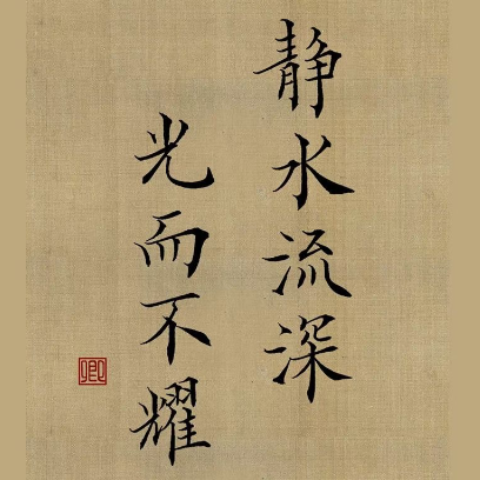 静水流深
光而不耀
卿